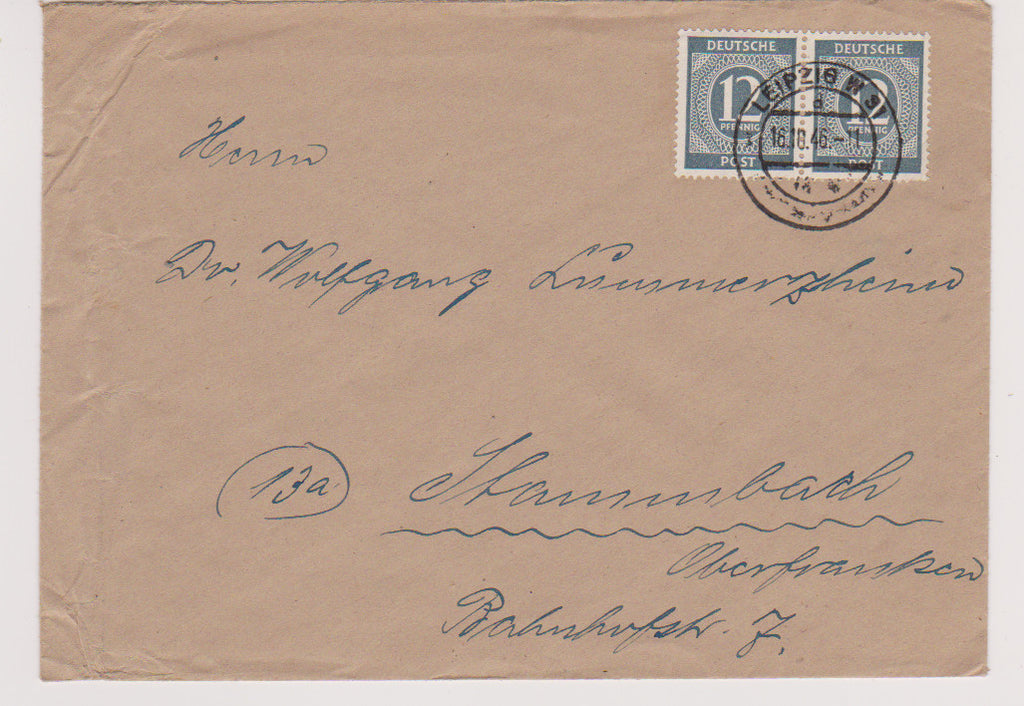 DEUTSCHE DEUTSCHE
12 12
PFENNIG PFENNIG
POST POST
LEIPZIG W 31
a
16.10.46.-11
Herrn
Dr. Wolfgang
13a Stammbach
Oberfranken
Bahnhofstr. 7.